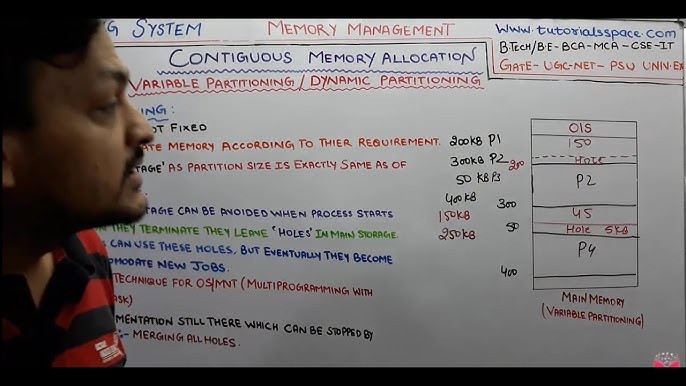 NG SYSTEM
MEMORY MANAGEMENT
www.tutorialsspace.com
BTECH/B.E-BCA-MCA-CSE-IT
GATE-UGC-NET- PSU UNIV.EX
CONTIGUOUS MEMORY ALLOCATION
VARIABLE PARTITIONING / DYNAMIC PARTITIONING
NING:
OT FIXED
ATE MEMORY ACCORDING TO THIER REQUIREMENT.
TAGE' AS PARTITION SIZE IS EXACTLY SAME AS OF
TAGE CAN BE AVOIDED WHEN PROCESS STARTS
N THEY TERMINATE THEY LEAVE 'HOLES' IN MAIN STORAGE.
S CAN USE THESE HOLES, BUT EVENTUALLY THEY BECOME
OMODATE NEW JOBS.
TECHNIQUE FOR OS/MNT (MULTIPROGRAMMING WITH
ASK)
MENTATION STILL THERE WHICH CAN BE STOPPED BY
:- MERGING ALL HOLES.
200KB P1
300KB P2
50 KB P3
400KB
150KB
250KB
200
300
50
400
O|S
150
HOLE
P2
45
HOLE 5KB
P4
MAIN MEMORY
(VARIABLE PARTITIONING)